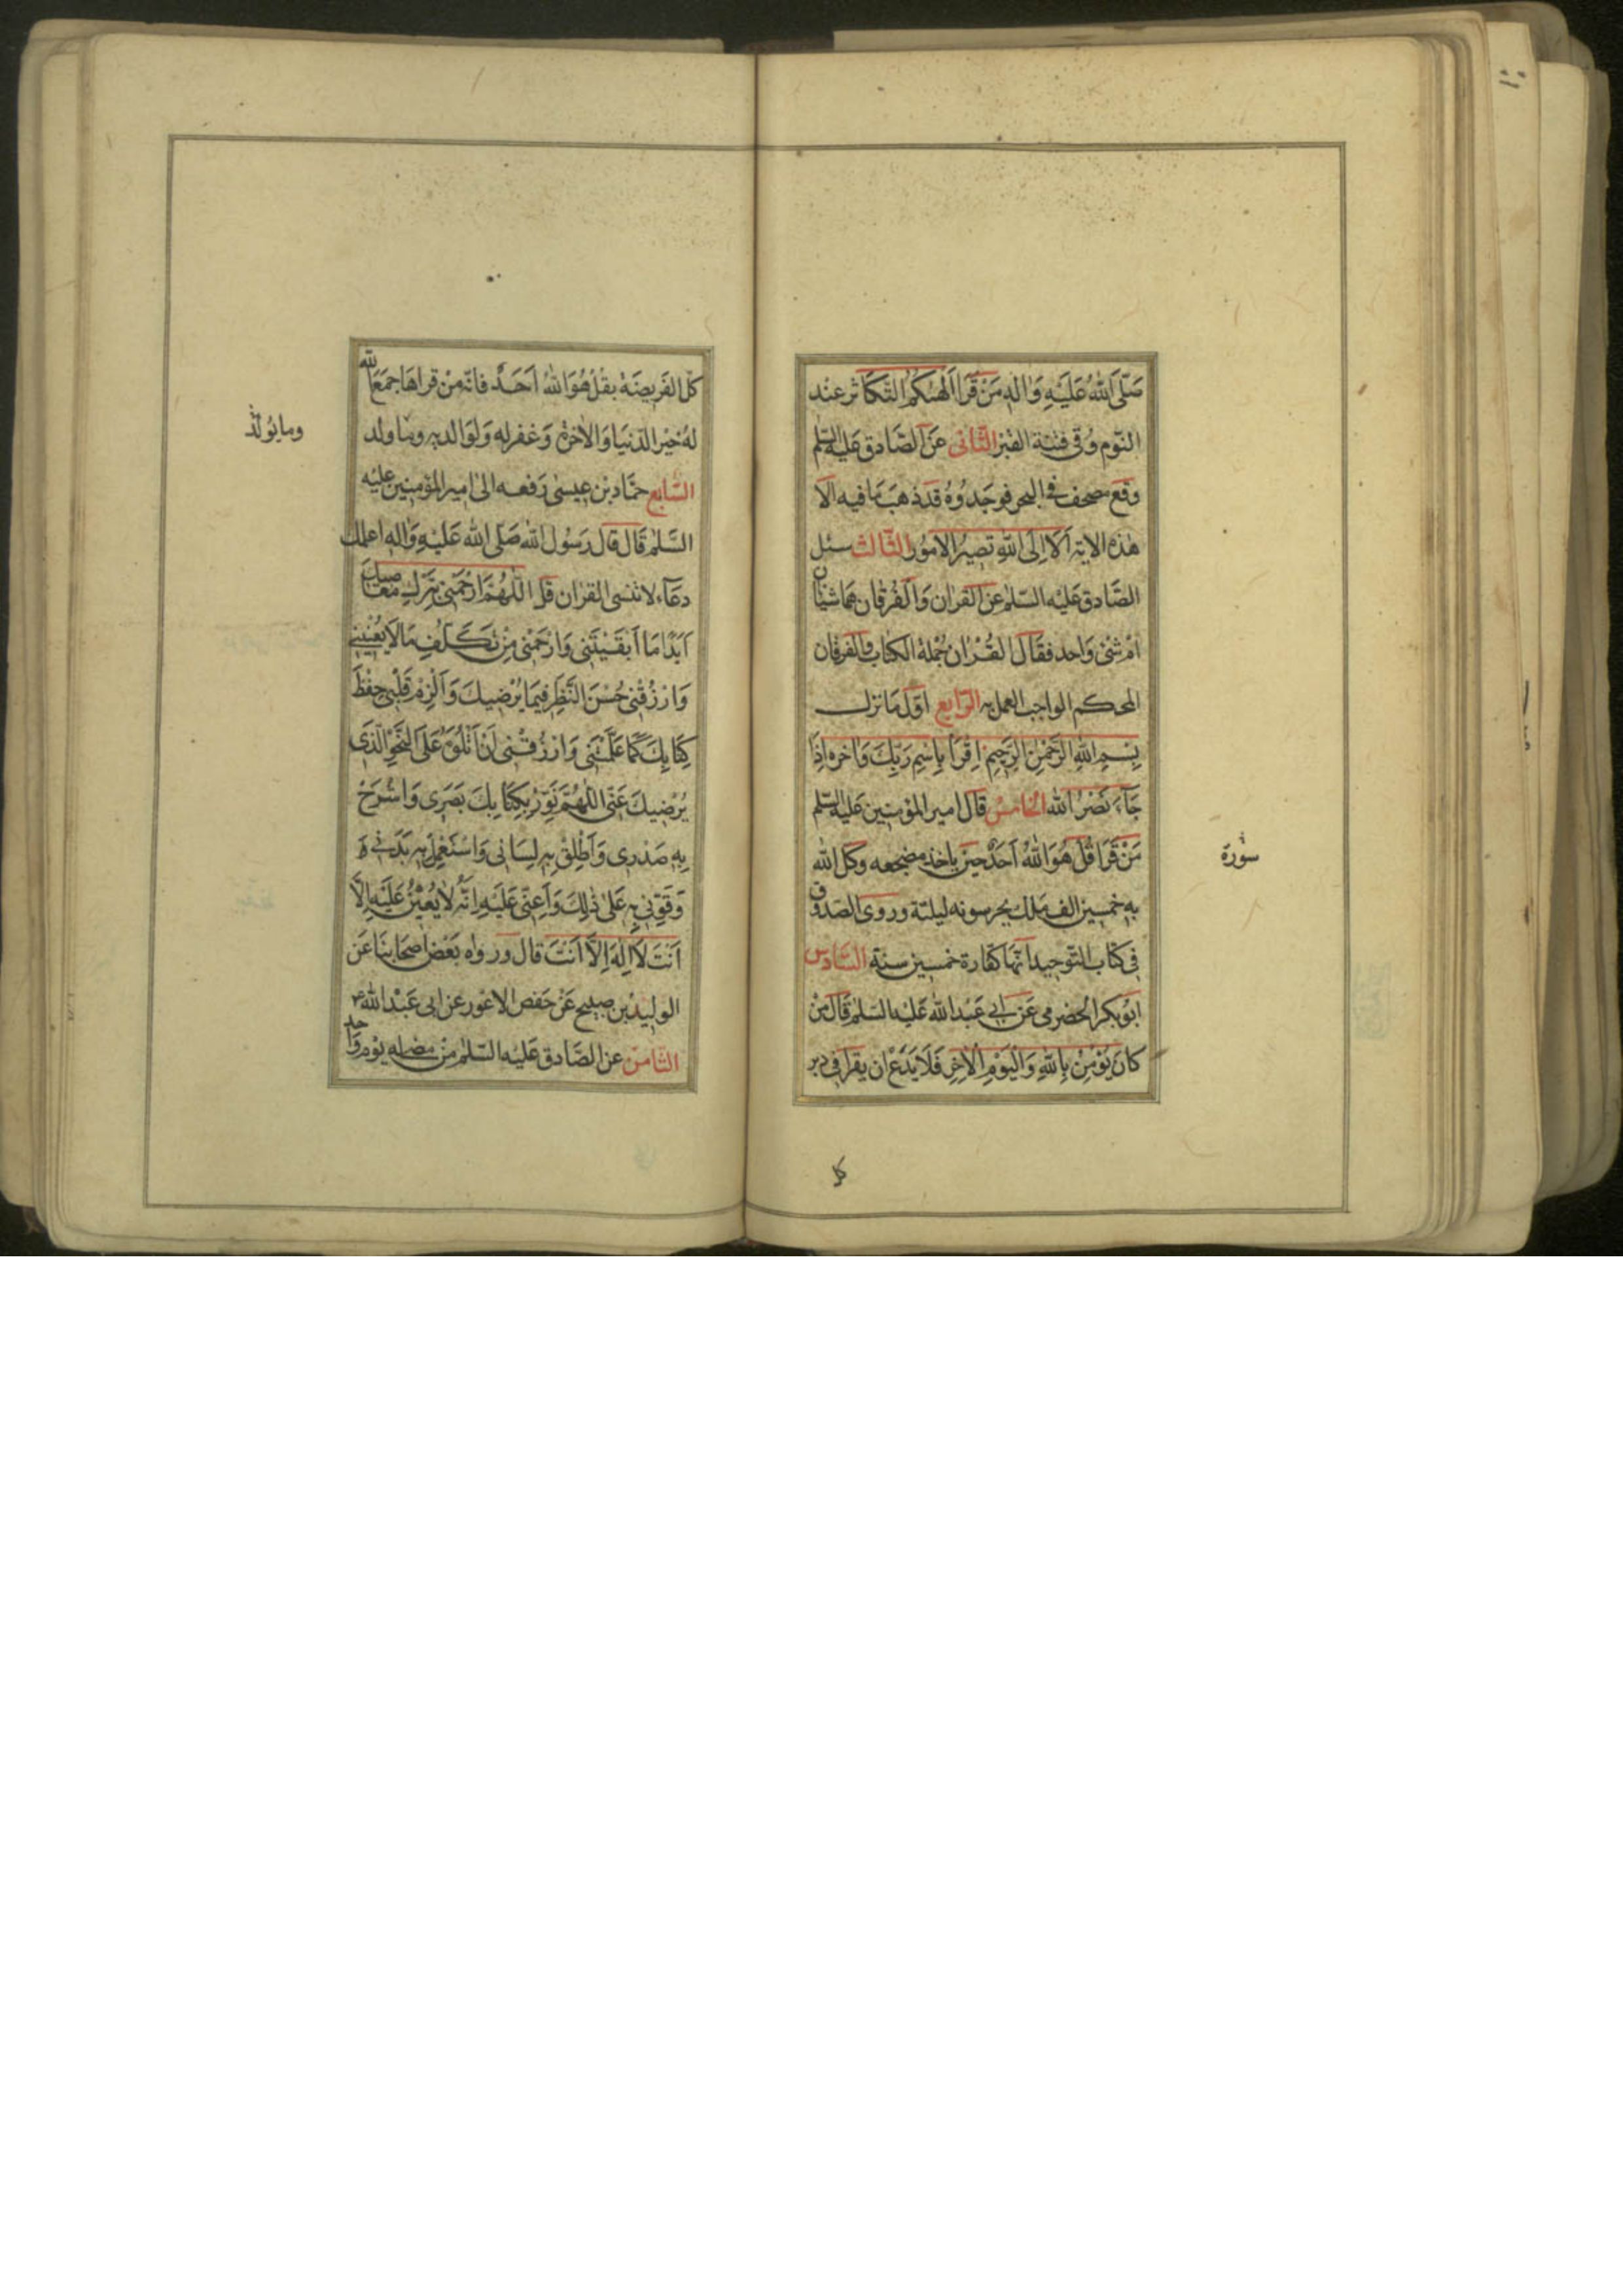 صَلَّى اللهُ عَلَيْهِ وَاٰلِهِ مَنْ قَرَا اَلْهٰيكُمُ التَّكَاثر عِنْد
النّوم وُقى فتنة القبر الثّانى عَنِ الصّادق عَليه السّلم
وقع مصحف فى البحر فوجَدُوهُ قد ذهبَ مَا فيه الاّ
هٰذه الاية اَلَا اِلَى اللهِ تَصِيرُ الامُوُر الثّالث سئل
الصَّادق عَليْه السّلم عن القراٰن وَالفُرقان هُمَا شيئان
امْ شئ وَاحد فقَال القُرْاٰن جُمْلة الكتاب والفرقان
المحكم الواجب العمل به الرّابع اوّل مَا نزل
بِسْمِ اللهِ الرَّحْمٰنِ الرَّحِيمِ اِقْرَأ بِاسْمِ رَبِّكَ وَاٰخره اِذَا
جَآءَ نَصْرُ الله الخامسُ قالَ امير المؤمنين عَليه السّلم
مَنْ قَرَا قُلْ هُوَ اللهُ اَحَدٌ حينَ ياخذ مضجعه وكل الله
به خمسين الف مَلك يحرسونه ليلته وروى الصّدوق
فى كتاب التّوحيد انّها كفّارة خمسين سنة السّادس
ابُو بكر الحضرمى عَن ابى عَبْد الله عَليْه السّلم قالَ مَنْ
كانَ يُؤْمِنُ بِاللهِ وَالْيَوْمِ الْاٰخِرِ فَلَا يَدَعْ ان يقرا فى دبر
سوُرة
كل
كلّ الفَريضَة بقُلْ هُوَ اللهُ اَحَدٌ فانّه مَنْ قراهَا جمَعَ الله
لهُ خيْر الدّنيَا وَالاٰخرة وَغفر له وَلوَالديه ومَا ولد
السّابع حمّاد بن عيسٰى رَفعه الى امير المؤمنين عليْه
السّلم قَال قال رَسُول الله صَلّى الله عَليْهِ وَاٰله اعلّمك
دعَآء لا تنسى القراٰن قل اَللّٰهُمَّ ارْحَمْنِى بِتَرْكِ مَعَاصِيكَ
اَبَدًا مَا اَبْقَيْتَنِى وَارْحَمْنِى مِنْ تَكَلُّفِ مَا لَا يَعْنِينِى
وَارْزُقْنِى حُسْنَ النَّظَرِ فِيمَا يُرْضِيكَ وَاَلْزِمْ قَلْبِى حِفْظَ
كِتَابِكَ كَمَا عَلَّمْتَنِى وَارْزُقْنِى اَنْ اَتْلُوَهُ عَلَى النَّحْوِ الَّذِى
يُرْضِيكَ عَنِّى اَللّٰهُمَّ نَوِّرْ بِكِتَابِكَ بَصَرِى وَاشْرَحْ
بِهِ صَدْرِى وَاَطْلِقْ بِهِ لِسَانِى وَاسْتَعْمِلْ بِهِ بَدَنِى وَ
قَوِّنِى بِهِ عَلَى ذٰلِكَ وَاَعِنِّى عَلَيْهِ اِنَّهُ لَا يُعِيْنُ عَلَيْهِ اِلَّا
اَنْتَ لَا اِلٰهَ اِلَّا اَنْتَ قال ورواه بَعْض اصحَابنَا عَن
الوليْد بن صبيح عَنْ حَفص الاعْور عن ابى عَبْد الله ع
الثّامن عن الصَّادق عَليْه السّلم مَنْ مضٰى له يَوْم وَاحد